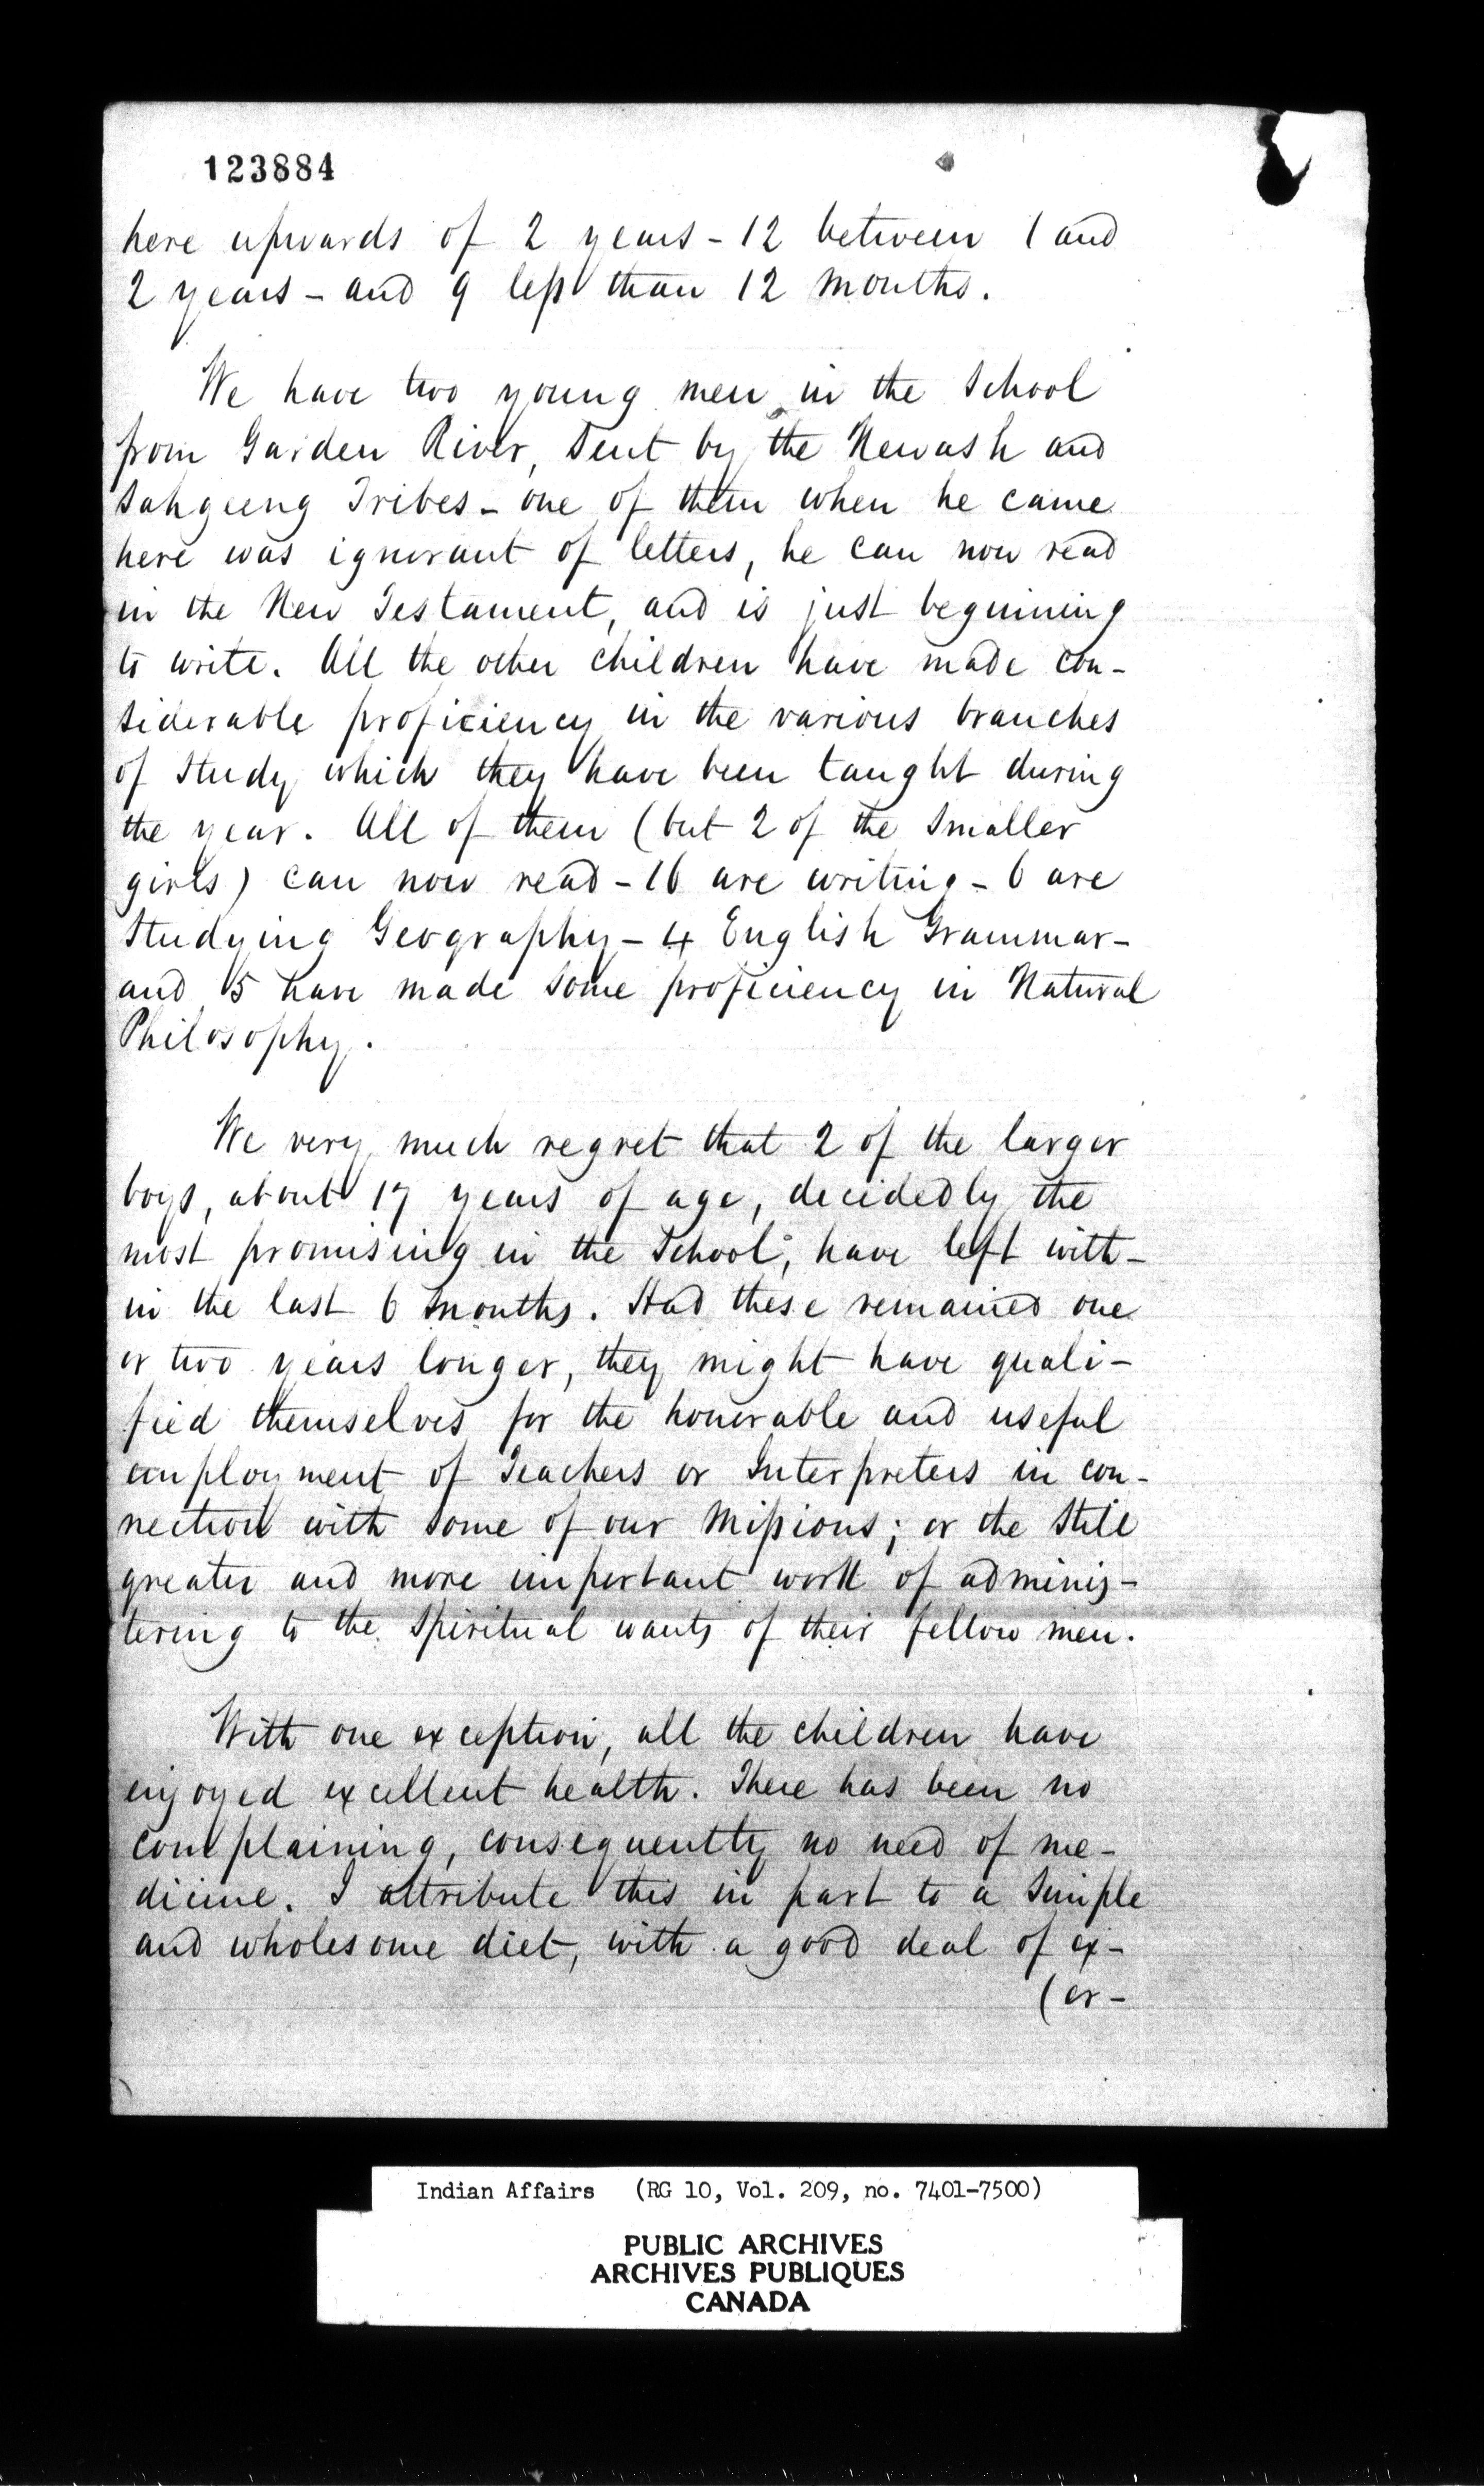 123884
here upwards of 2 years - 12 between 1 and
2 years - and 9 less than 12 months.
We have two young men in the School
from Garden River, sent by the Newash and
Sahgeeng Tribes - one of them when he came
here was ignorant of letters, he can now read
in the New Testament, and is just beginning
to write. All the other children have made con-
siderable proficiency in the various branches
of study which they have been taught during
the year. All of them (but 2 of the smaller
girls) can now read - 16 are writing - 6 are
studying Geography - 4 English Grammar -
and 5 have made some proficiency in Natural
Philosophy.
We very much regret that 2 of the larger
boys, about 17 years of age, decidedly the
most promising in the School, have left with-
in the last 6 months. Had these remained one
or two years longer, they might have quali-
fied themselves for the honorable and useful
employment of Teachers or Interpreters in con-
nection with some of our Missions; or the still
greater and more important work of adminis-
tering to the spiritual wants of their fellow men.
With one exception, all the children have
enjoyed excellent health. There has been no
complaining, consequently no need of me-
dicine. I attribute this in part to a simple
and wholesome diet, with a good deal of ex-
(er-
Indian Affairs (RG 10, Vol. 209, no. 7401-7500)
PUBLIC ARCHIVES
ARCHIVES PUBLIQUES
CANADA